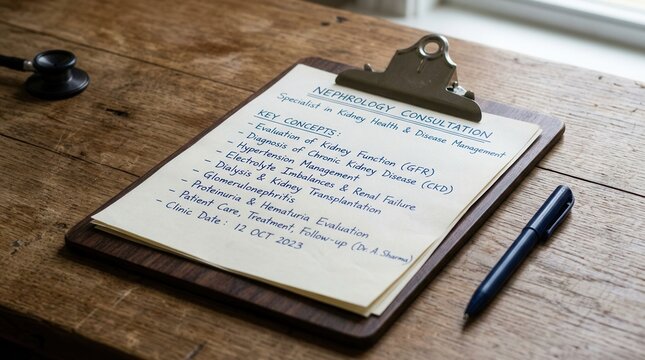 NEPHROLOGY CONSULTATION
Specialist in Kidney Health & Disease Management
KEY CONCEPTS:
- Evaluation of Kidney Function (GFR)
- Diagnosis of Chronic Kidney Disease (CKD)
- Hypertension Management
- Electrolyte Imbalances & Renal Failure
- Dialysis & Kidney Transplantation
- Glomerulonephritis
- Proteinuria & Hematuria Evaluation
- Patient Care, Treatment, Follow-up (Dr. A. Sharma)
- Clinic Date: 12 OCT 2023